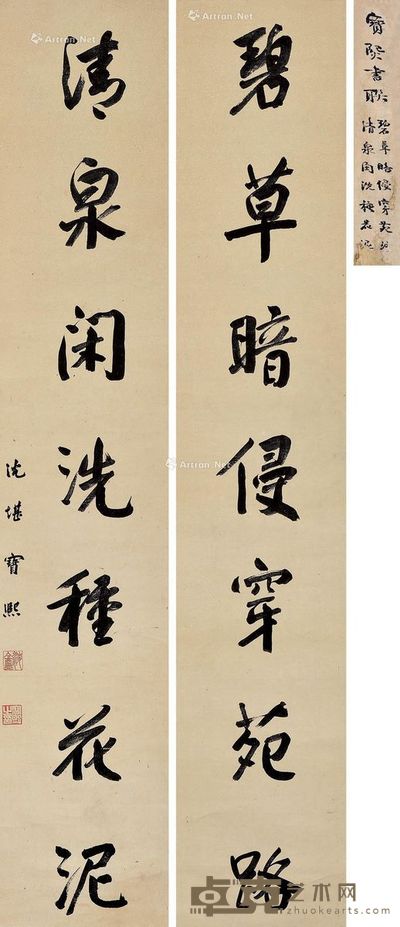 碧草暗侵穿苑路
清泉闲洗種花泥
沈堪寶熙
寶熙書聯
碧草暗侵穿苑路
清泉闲洗種花泥
Artron.Net
Artron.Net
Artron.Net
卓克艺术网
zhuokearts.com